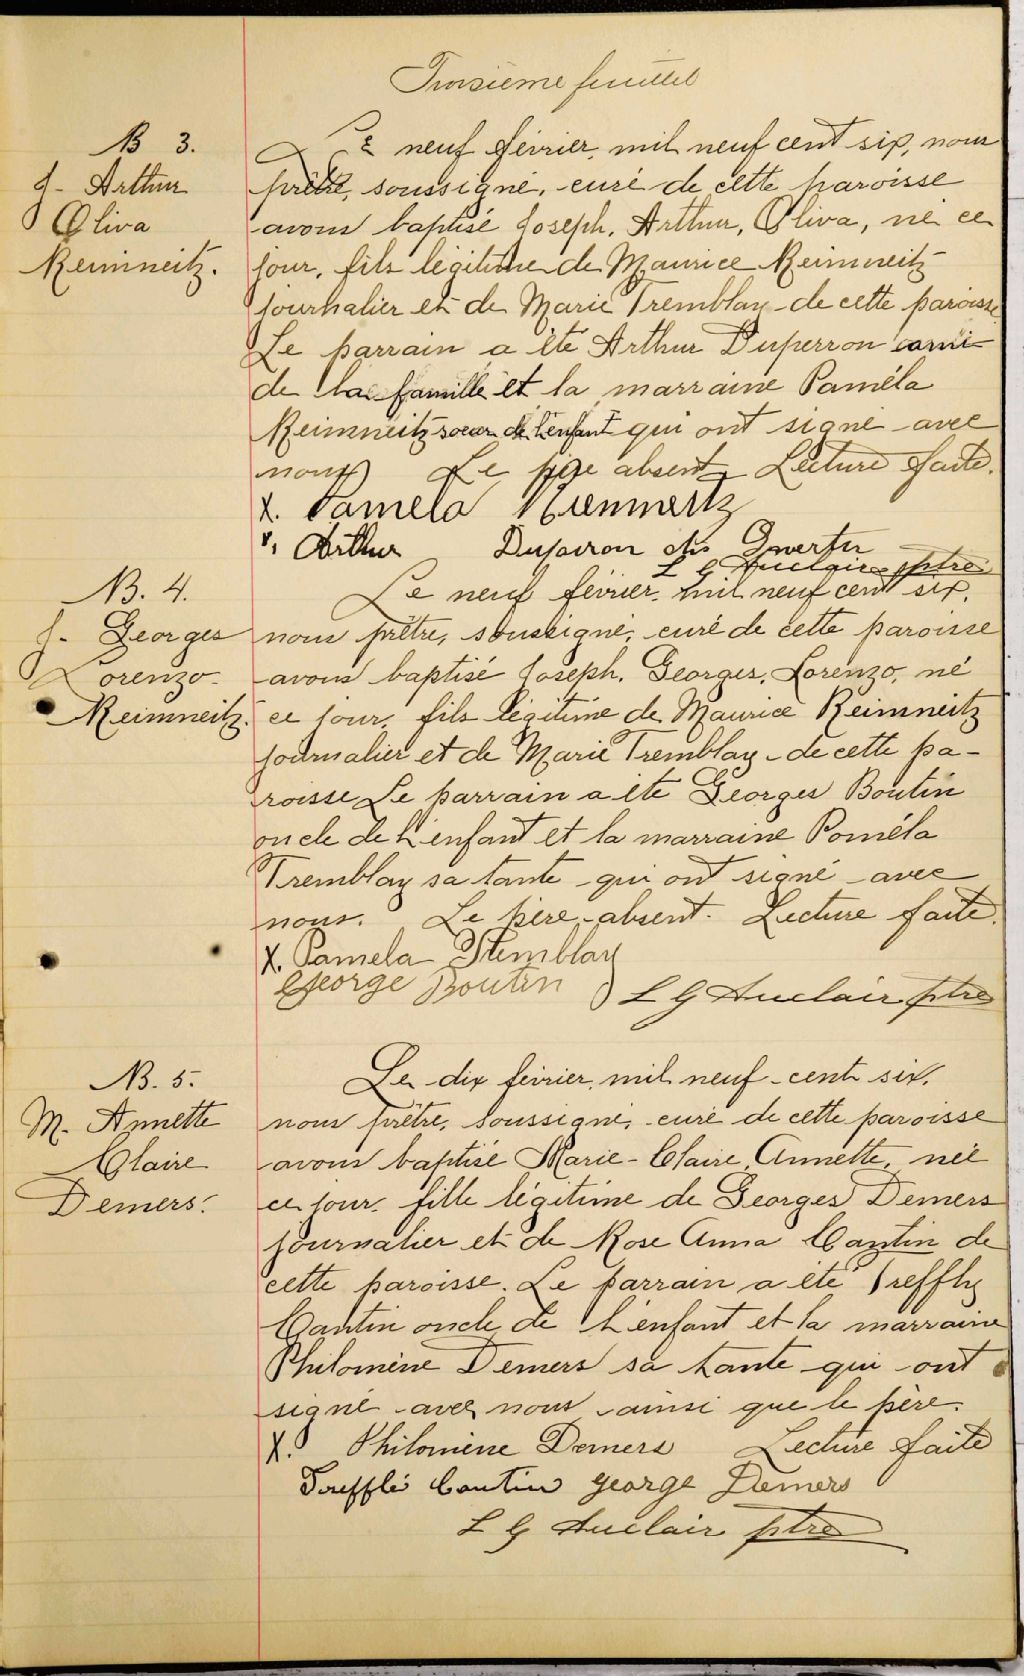 Troisième feuillet
B 3.
J. Arthur
Oliva
Reimneitz.
Le neuf février, mil neuf cent six, nous
prêtre, soussigné, curé de cette paroisse
avons baptisé Joseph, Arthur, Oliva, né ce
jour, fils légitime de Maurice Reimneitz
journalier et de Marie Tremblay de cette paroisse.
Le parrain a été Arthur Duperron ami
de la famille et la marraine Paméla
Reimneitz soeur de l'enfant qui ont signé avec
nous Le père absent. Lecture faite.
X. Pamela Riemneitz
Arthur
L G Auclair ptre
B. 4.
J. Georges
Lorenzo
Reimneitz.
Le neuf février, mil neuf cent six,
nous prêtre, soussigné, curé de cette paroisse
avons baptisé Joseph, Georges, Lorenzo, né
ce jour, fils légitime de Maurice Reimneitz
journalier et de Marie Tremblay de cette pa-
roisse Le parrain a été Georges Boutin
oncle de l'enfant et la marraine Poméla
Tremblay sa tante qui ont signé avec
nous. Le père absent. Lecture faite.
X. Pamela Tremblay
George Boutin
L G Auclair ptre
B. 5.
M. Annette
Claire
Demers.
Le dix février, mil neuf-cent six,
nous prêtre, soussigné, curé de cette paroisse
avons baptisé Marie-Claire, Annette, née
ce jour, fille légitime de Georges Demers
journalier et de Rose Anna Cantin de
cette paroisse. Le parrain a été Treffly
Cantin oncle de l'enfant et la marraine
Philomène Demers sa tante qui ont
signé avec nous ainsi que le père.
X. Philomène Demers Lecture faite
Trefflé Cantin George Demers
L G Auclair ptre